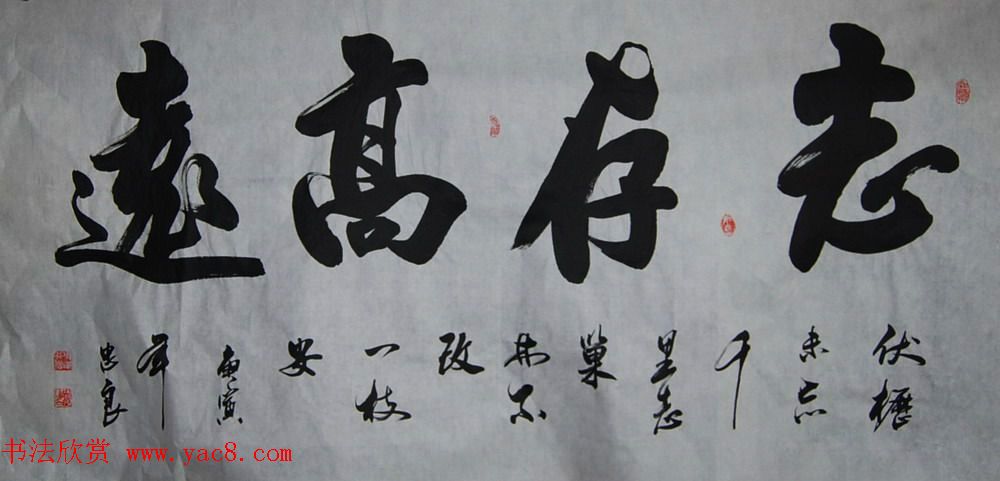 志存高遠
伏櫪
未忘
千
里志
巢
林不
改
一枝
安
庚寅
年
忠良
书法欣赏 www.yac8.com